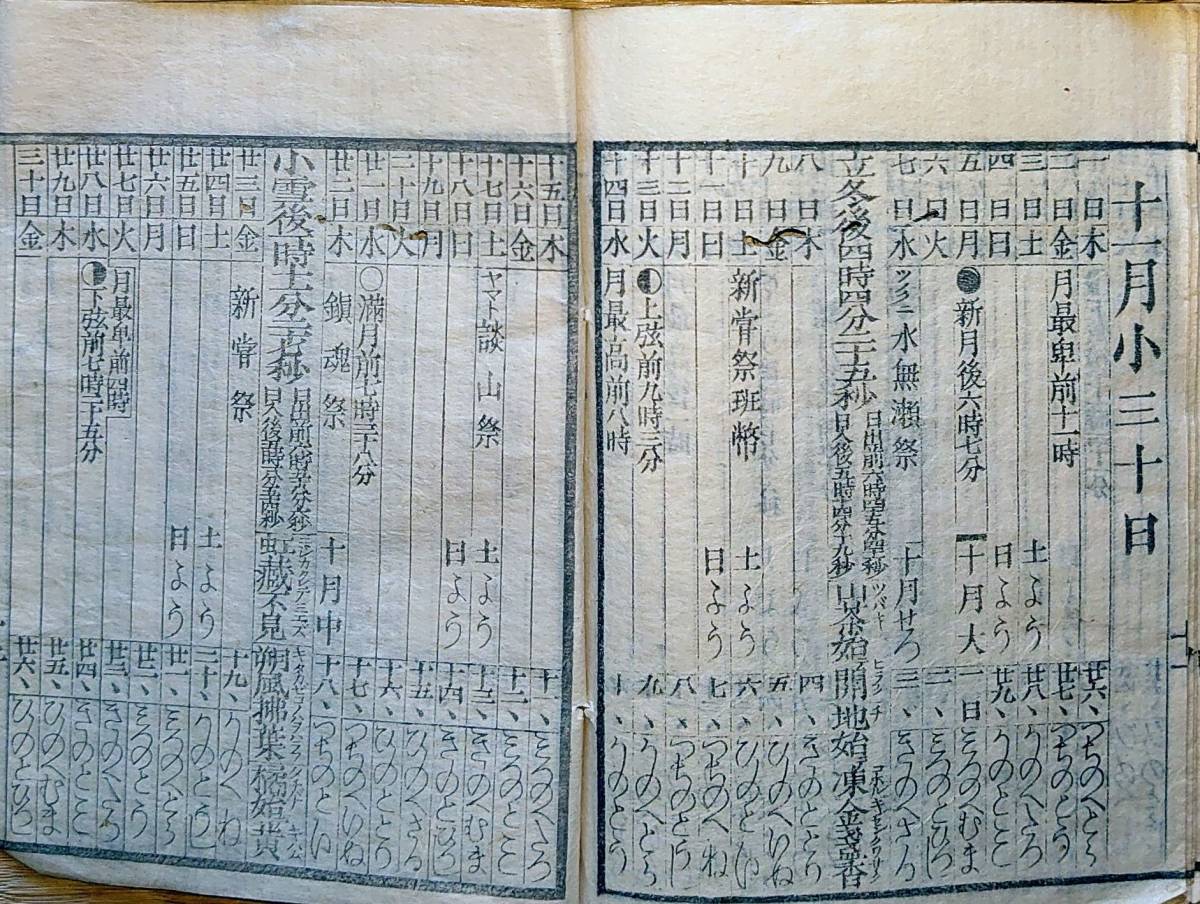 十一月小三十日
一日木 廿六、つちのへとら
二日金 月最卑前十一時 廿七、つちのとう
三日土 土よう 廿八、かのへたつ
四日日 日よう 廿九、かのとみ
五日月 ●新月後六時七分 十月大 一日 みつのへむま
六日火 二、みつのとひつし
七日水 ツクニ 水無瀬祭 十月せつ 三、きのへさる
立冬後四時四分二十五秒 日入後五時十四分十九秒 ツバキ 山茶始開 地始凍 金盞香
八日木 四、きのととり
九日金 五、ひのへいぬ
十日土 新甞祭班幣 土よう 六、ひのとい
十一日日 日よう 七、つちのへね
十二日月 八、つちのとうし
十三日火 ◐上弦前九時三分 九、かのへとら
十四日水 月最高前八時 十、かのとう
十五日木 十一、みつのへたつ
十六日金 十二、みつのとみ
十七日土 ヤマト 談山祭 土よう 十三、きのへむま
十八日日 日よう 十四、きのとひつし
十九日月 十五、ひのへさる
二十日火 十六、ひのととり
廿一日水 ○満月前七時二十八分 十七、つちのへいぬ
廿二日木 鎭魂祭 十月中 十八、つちのとい
小雪後一時 虹藏不見 朔風拂葉 橘始黄
廿三日金 新甞祭 十九、かのへね
廿四日土 土よう 二十、かのとうし
廿五日日 日よう 廿一、みつのへとら
廿六日月 廿二、みつのとう
廿七日火 月最卑前四時 廿三、きのへたつ
廿八日水 ◑下弦前七時二十五分 廿四、きのとみ
廿九日木 廿五、ひのへむま
三十日金 廿六、ひのとひつし